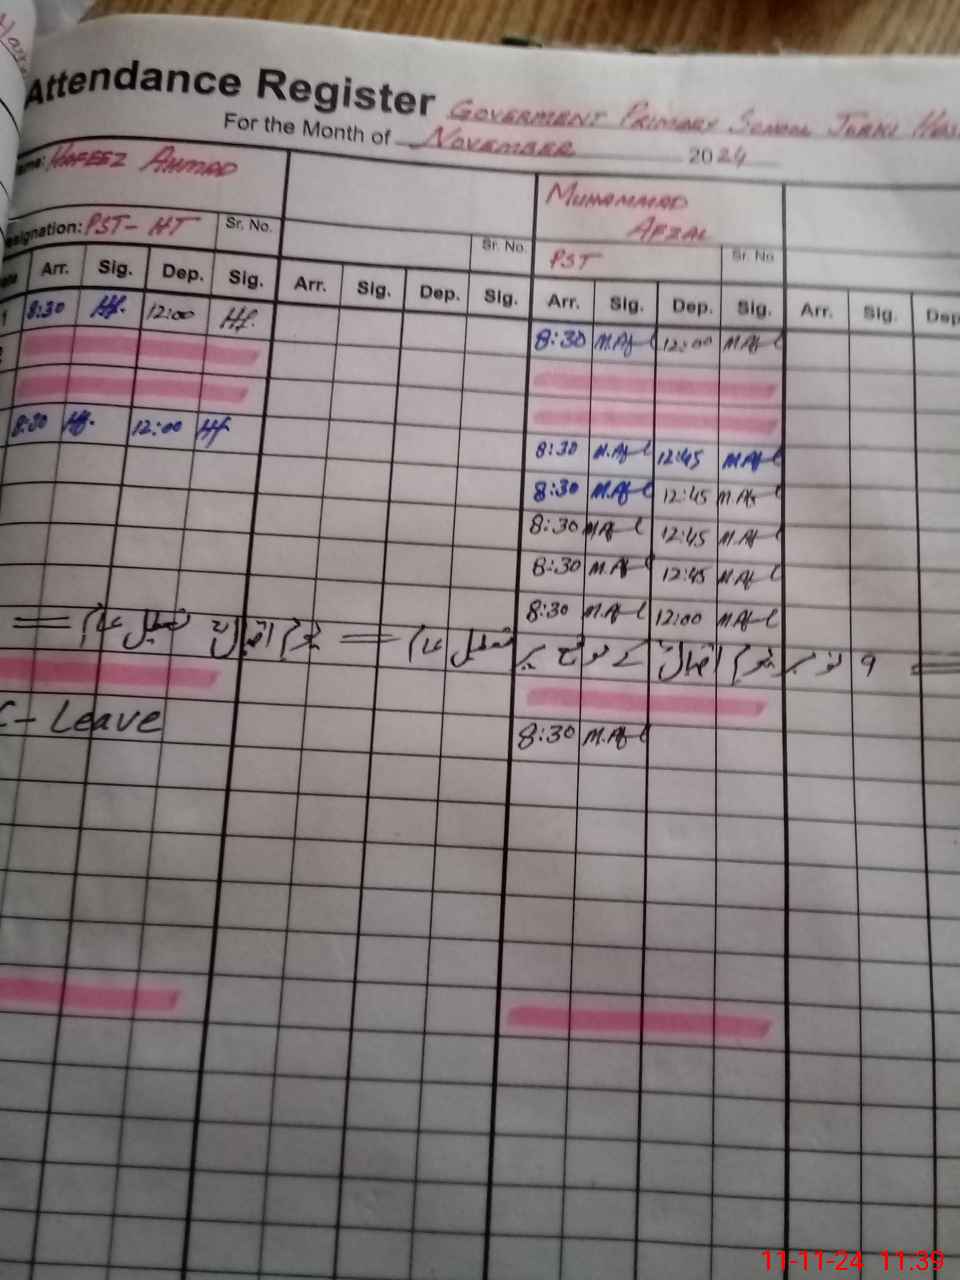 Attendance Register GOVERMENT PRIMARY SCHOOL
For the Month of NOVEMBER 2024
HAFEEZ AHMAD
MUHAMMAD
AFZAL
PST- HT Sr. No. Sr. No. PST Sr. No
Arr. Sig. Dep. Sig. Arr. Sig. Dep. Sig. Arr. Sig. Dep. Sig. Arr. Sig. Dep
1 8:30 Hf. 12:00 Hf. 8:30 M.Af l 12:00 M.Af l
8:30 Hf. 12:00 Hf 8:30 M.Af l 12:45 M.Af l
8:30 M.Af l 12:45 M.Af l
8:30 M.Af l 12:45 M.Af l
8:30 M.Af l 12:45 M.Af l
8:30 M.Af l 12:00 M.Af l
۹ نومبر یوم اقبال کے موقع پر تعطیل عام = یوم اقبال تعطیل عام =
C- Leave 8:30 M.Af l
11-11-24 11:39